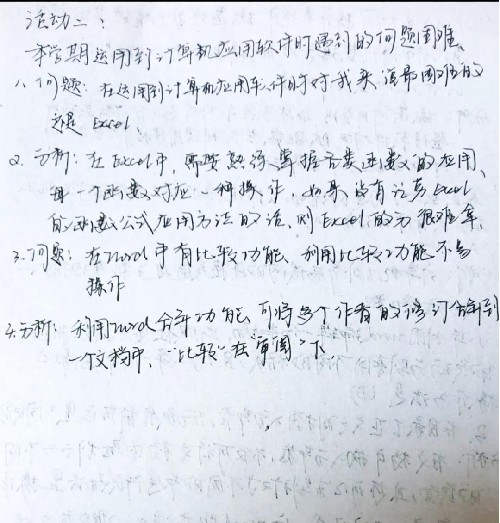 活动二：
本学期运用到计算机应用软件时遇到的问题困难、
1、问题：在运用到计算机应用软件时对我来说最困难的
还是 Excel
2. 分析：在Excel中，需要熟练掌握各类函数的应用，
每一个函数对应一种操作，如果没有记忆Excel
的函数公式应用方法的话，则Excel的分很难拿，
3.问题：在word中有比较功能、利用比较功能不易
操作
4.分析：利用word合并功能，可将多个作者的修订合并到
一个文档中，"比较"在"审阅"下